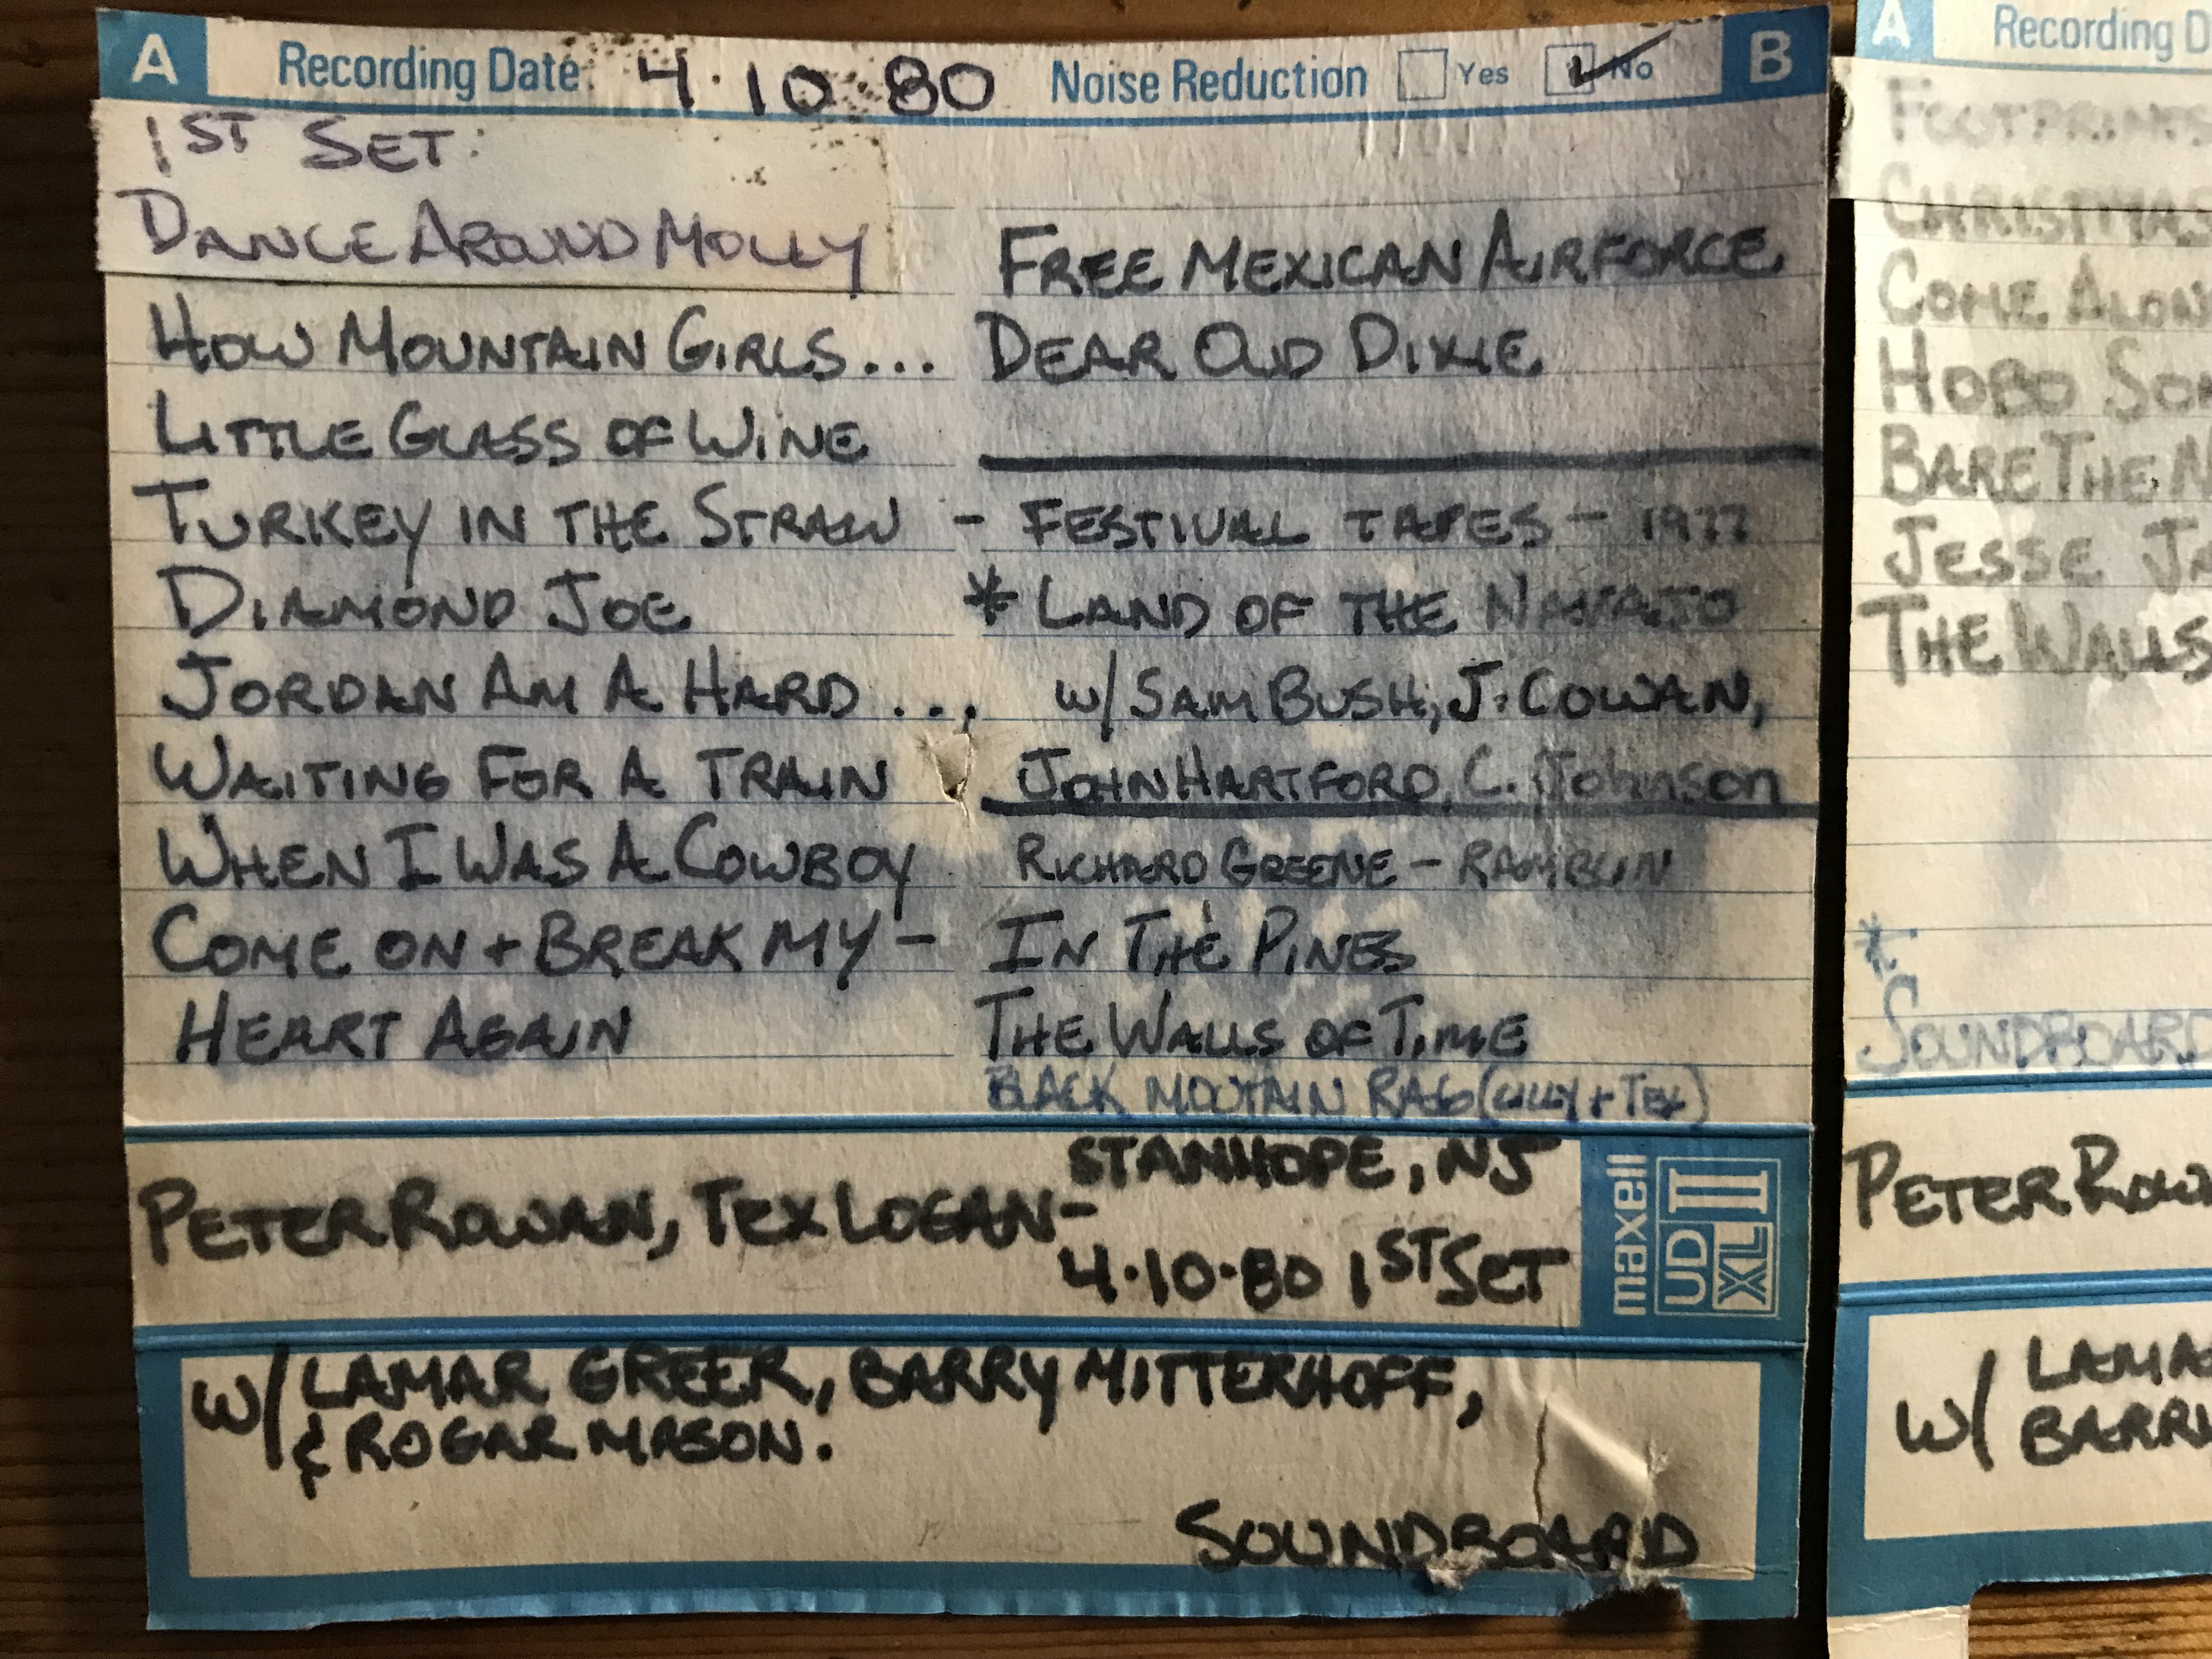 A Recording Date 4·10·80 Noise Reduction Yes No B
1ST SET:
DANCE AROUND MOLLY
HOW MOUNTAIN GIRLS...
LITTLE GLASS OF WINE
TURKEY IN THE STRAW -
DIAMOND JOE
JORDAN AM A HARD....
WAITING FOR A TRAIN
WHEN I WAS A COWBOY
COME ON + BREAK MY -
HEART AGAIN
FREE MEXICAN AIRFORCE
DEAR OLD DIXIE
- FESTIVAL TAPES - 1977
* LAND OF THE NAVAJO
W/ SAM BUSH, J. COWAN,
JOHN HARTFORD, C. Johnson
RICHARD GREENE - RAMBLIN
IN THE PINES
THE WALLS OF TIME
BLACK MOUNTAIN RAG (
+ TEX)
PETER ROWAN, TEX LOGAN -
STANHOPE, NJ
4·10·80 1ST SET
maxell
UD
XL
II
W/ LAMAR GREER, BARRY MITTERHOFF,
& ROGER MASON.
SOUNDBOARD
A Recording D
FOOTPRINTS
CHRISTMAS
COME ALON
HOBO SON
BARE THE N
JESSE JA
THE WALLS
*
SOUNDBOARD
PETER ROW
W/ LAMA
BARR